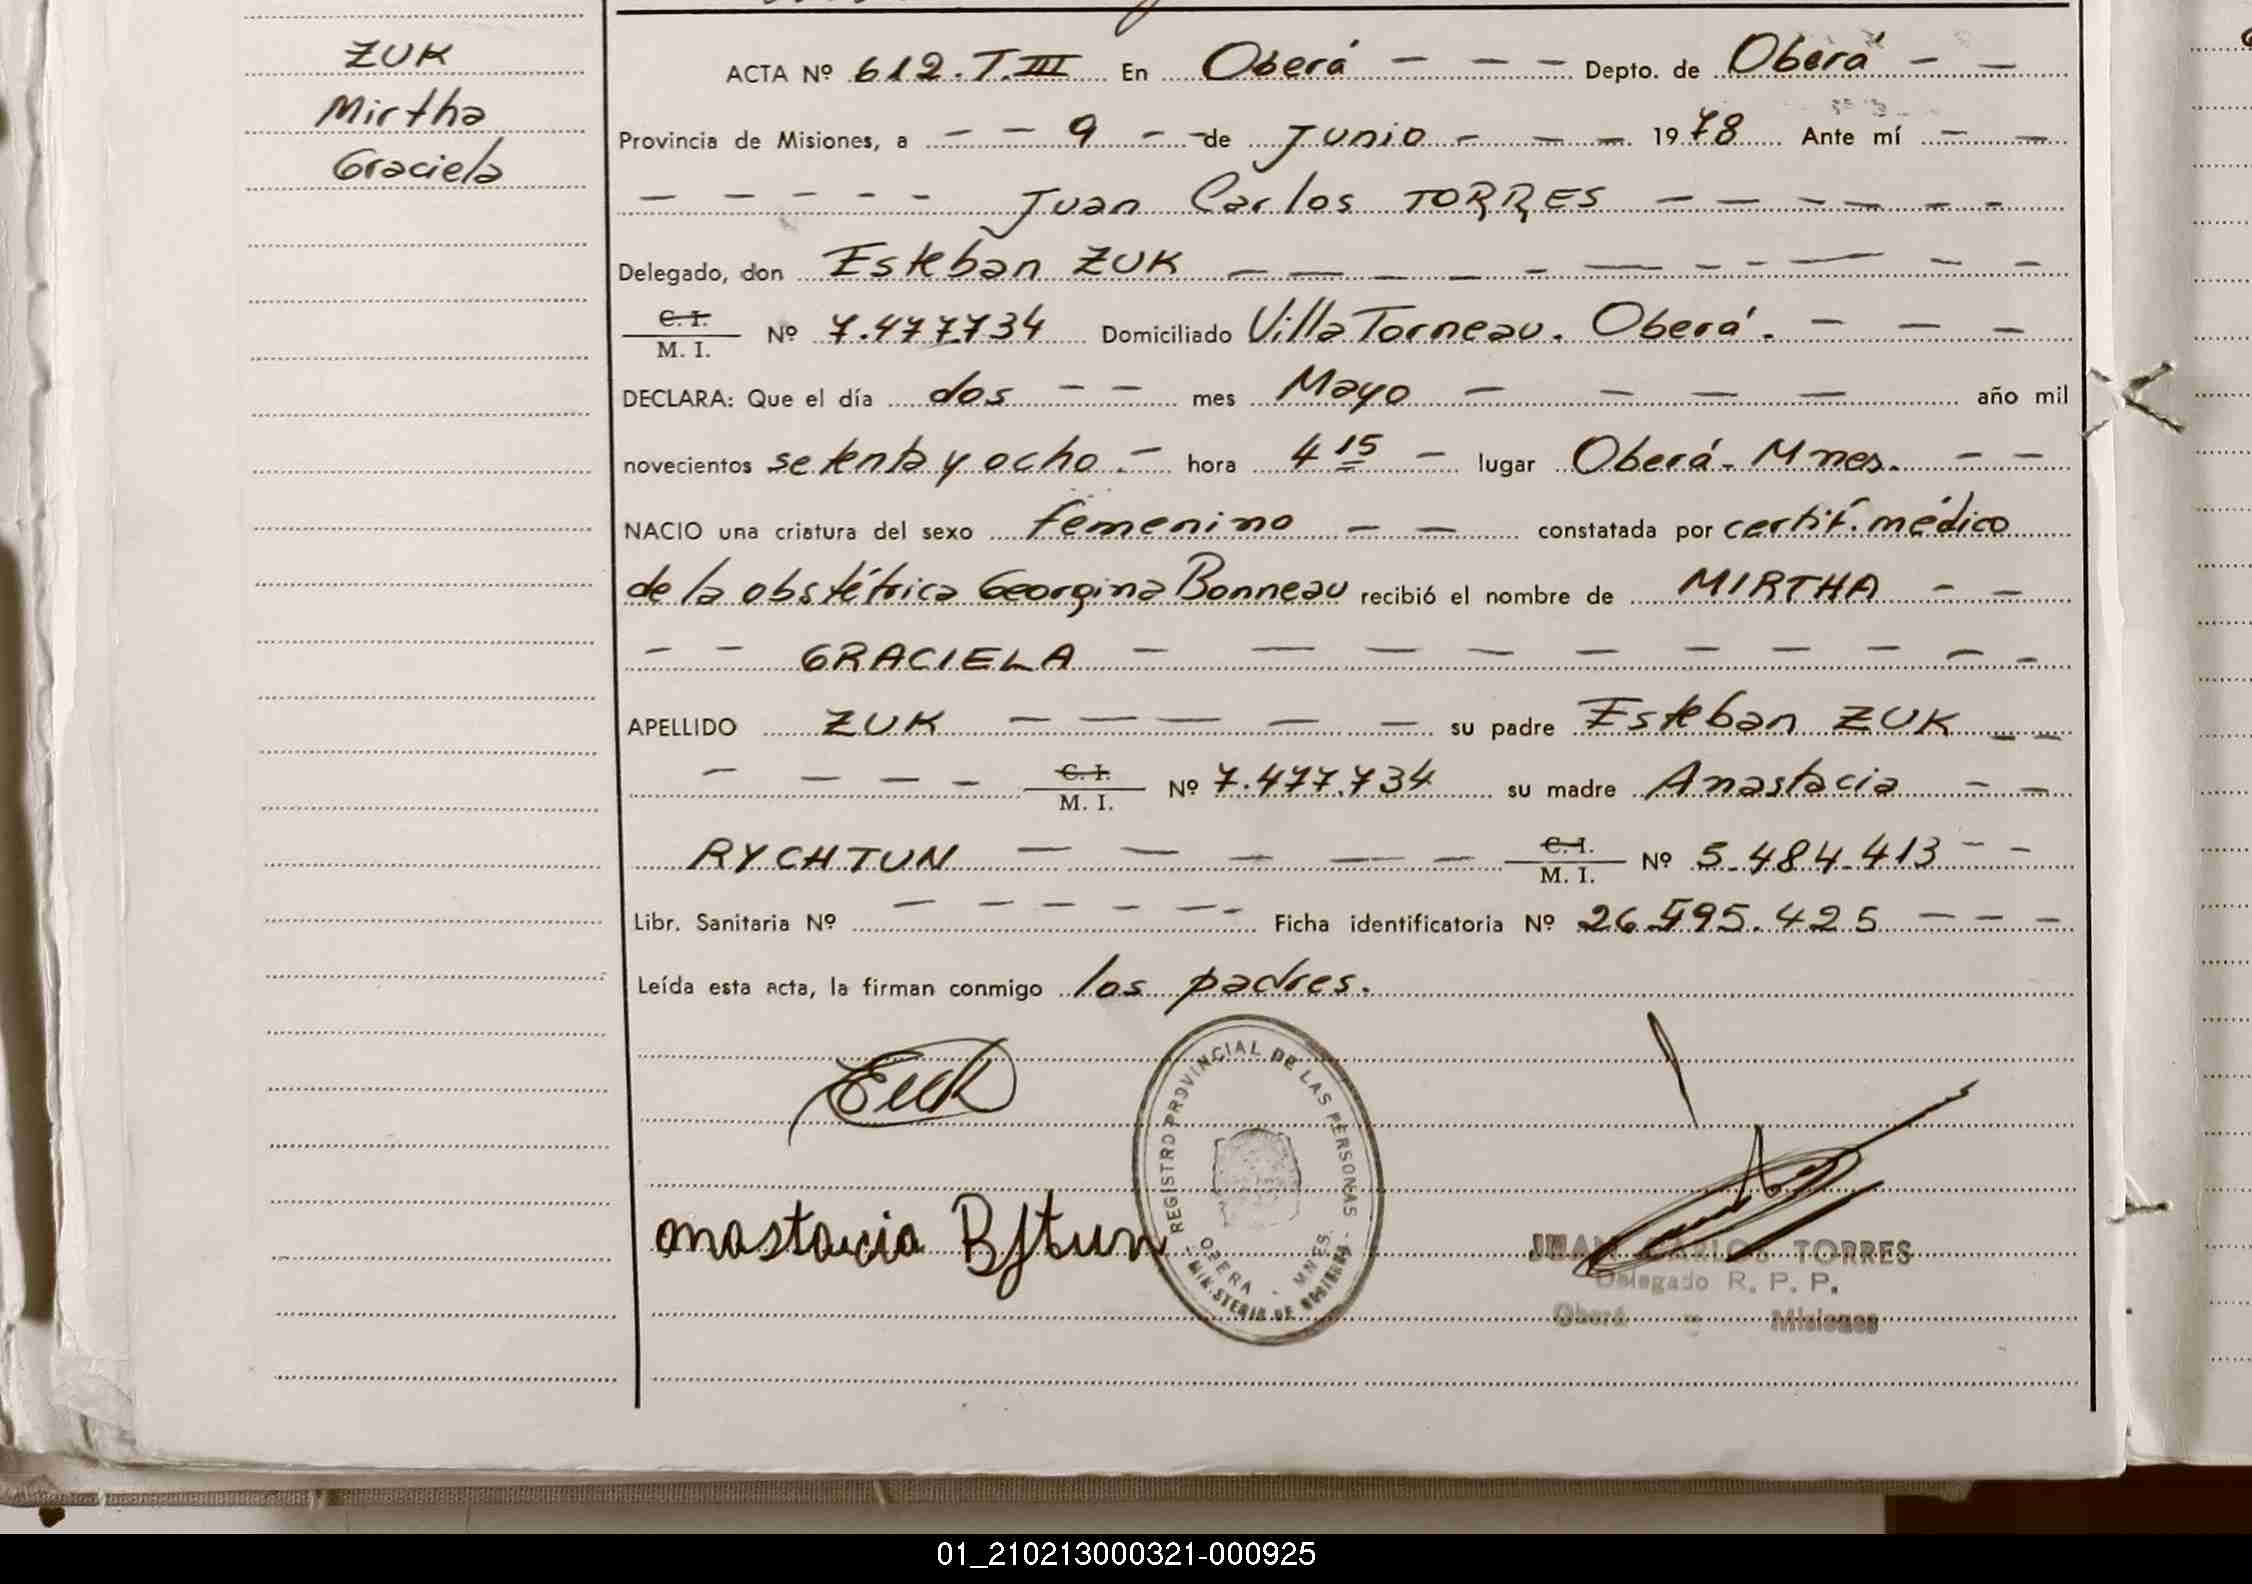 ZUK
Mirtha
Graciela
ACTA Nº 612. T. III En Oberá - - - Depto. de Oberá - -
Provincia de Misiones, a - - 9 - - de Junio - - - 1978 Ante mí - -
- - - - - Juan Carlos TORRES - - - - - - -
Delegado, don Esteban ZUK - - - - - - - - - - -
C. I. / M. I. Nº 7.477.734 Domiciliado Villa Torneau. Oberá. - - -
DECLARA: Que el día dos - - mes Mayo - - - - año mil
novecientos setenta y ocho. - hora 4 15 - lugar Oberá - Mnes. - -
NACIO una criatura del sexo femenino - - constatada por certif. médico
de la obstétrica Georgina Bonneau recibió el nombre de MIRTHA - -
- - GRACIELA - - - - - - - - - -
APELLIDO ZUK - - - - - su padre Esteban ZUK - -
- - - - C. I. / M. I. Nº 7.477.734 su madre Anastacia - -
RYCHTUN - - - - - - C. I. / M. I. Nº 5.484.413 - -
Libr. Sanitaria Nº - - - - - - Ficha identificatoria Nº 26.595.425 - - -
Leída esta acta, la firman conmigo los padres.
REGISTRO PROVINCIAL DE LAS PERSONAS
OBERA - MNES.
- MINISTERIO DE GOBIERNO -
anastacia
JUAN CARLOS TORRES
Delegado R. P. P.
Oberá - Misiones
01_210213000321-000925